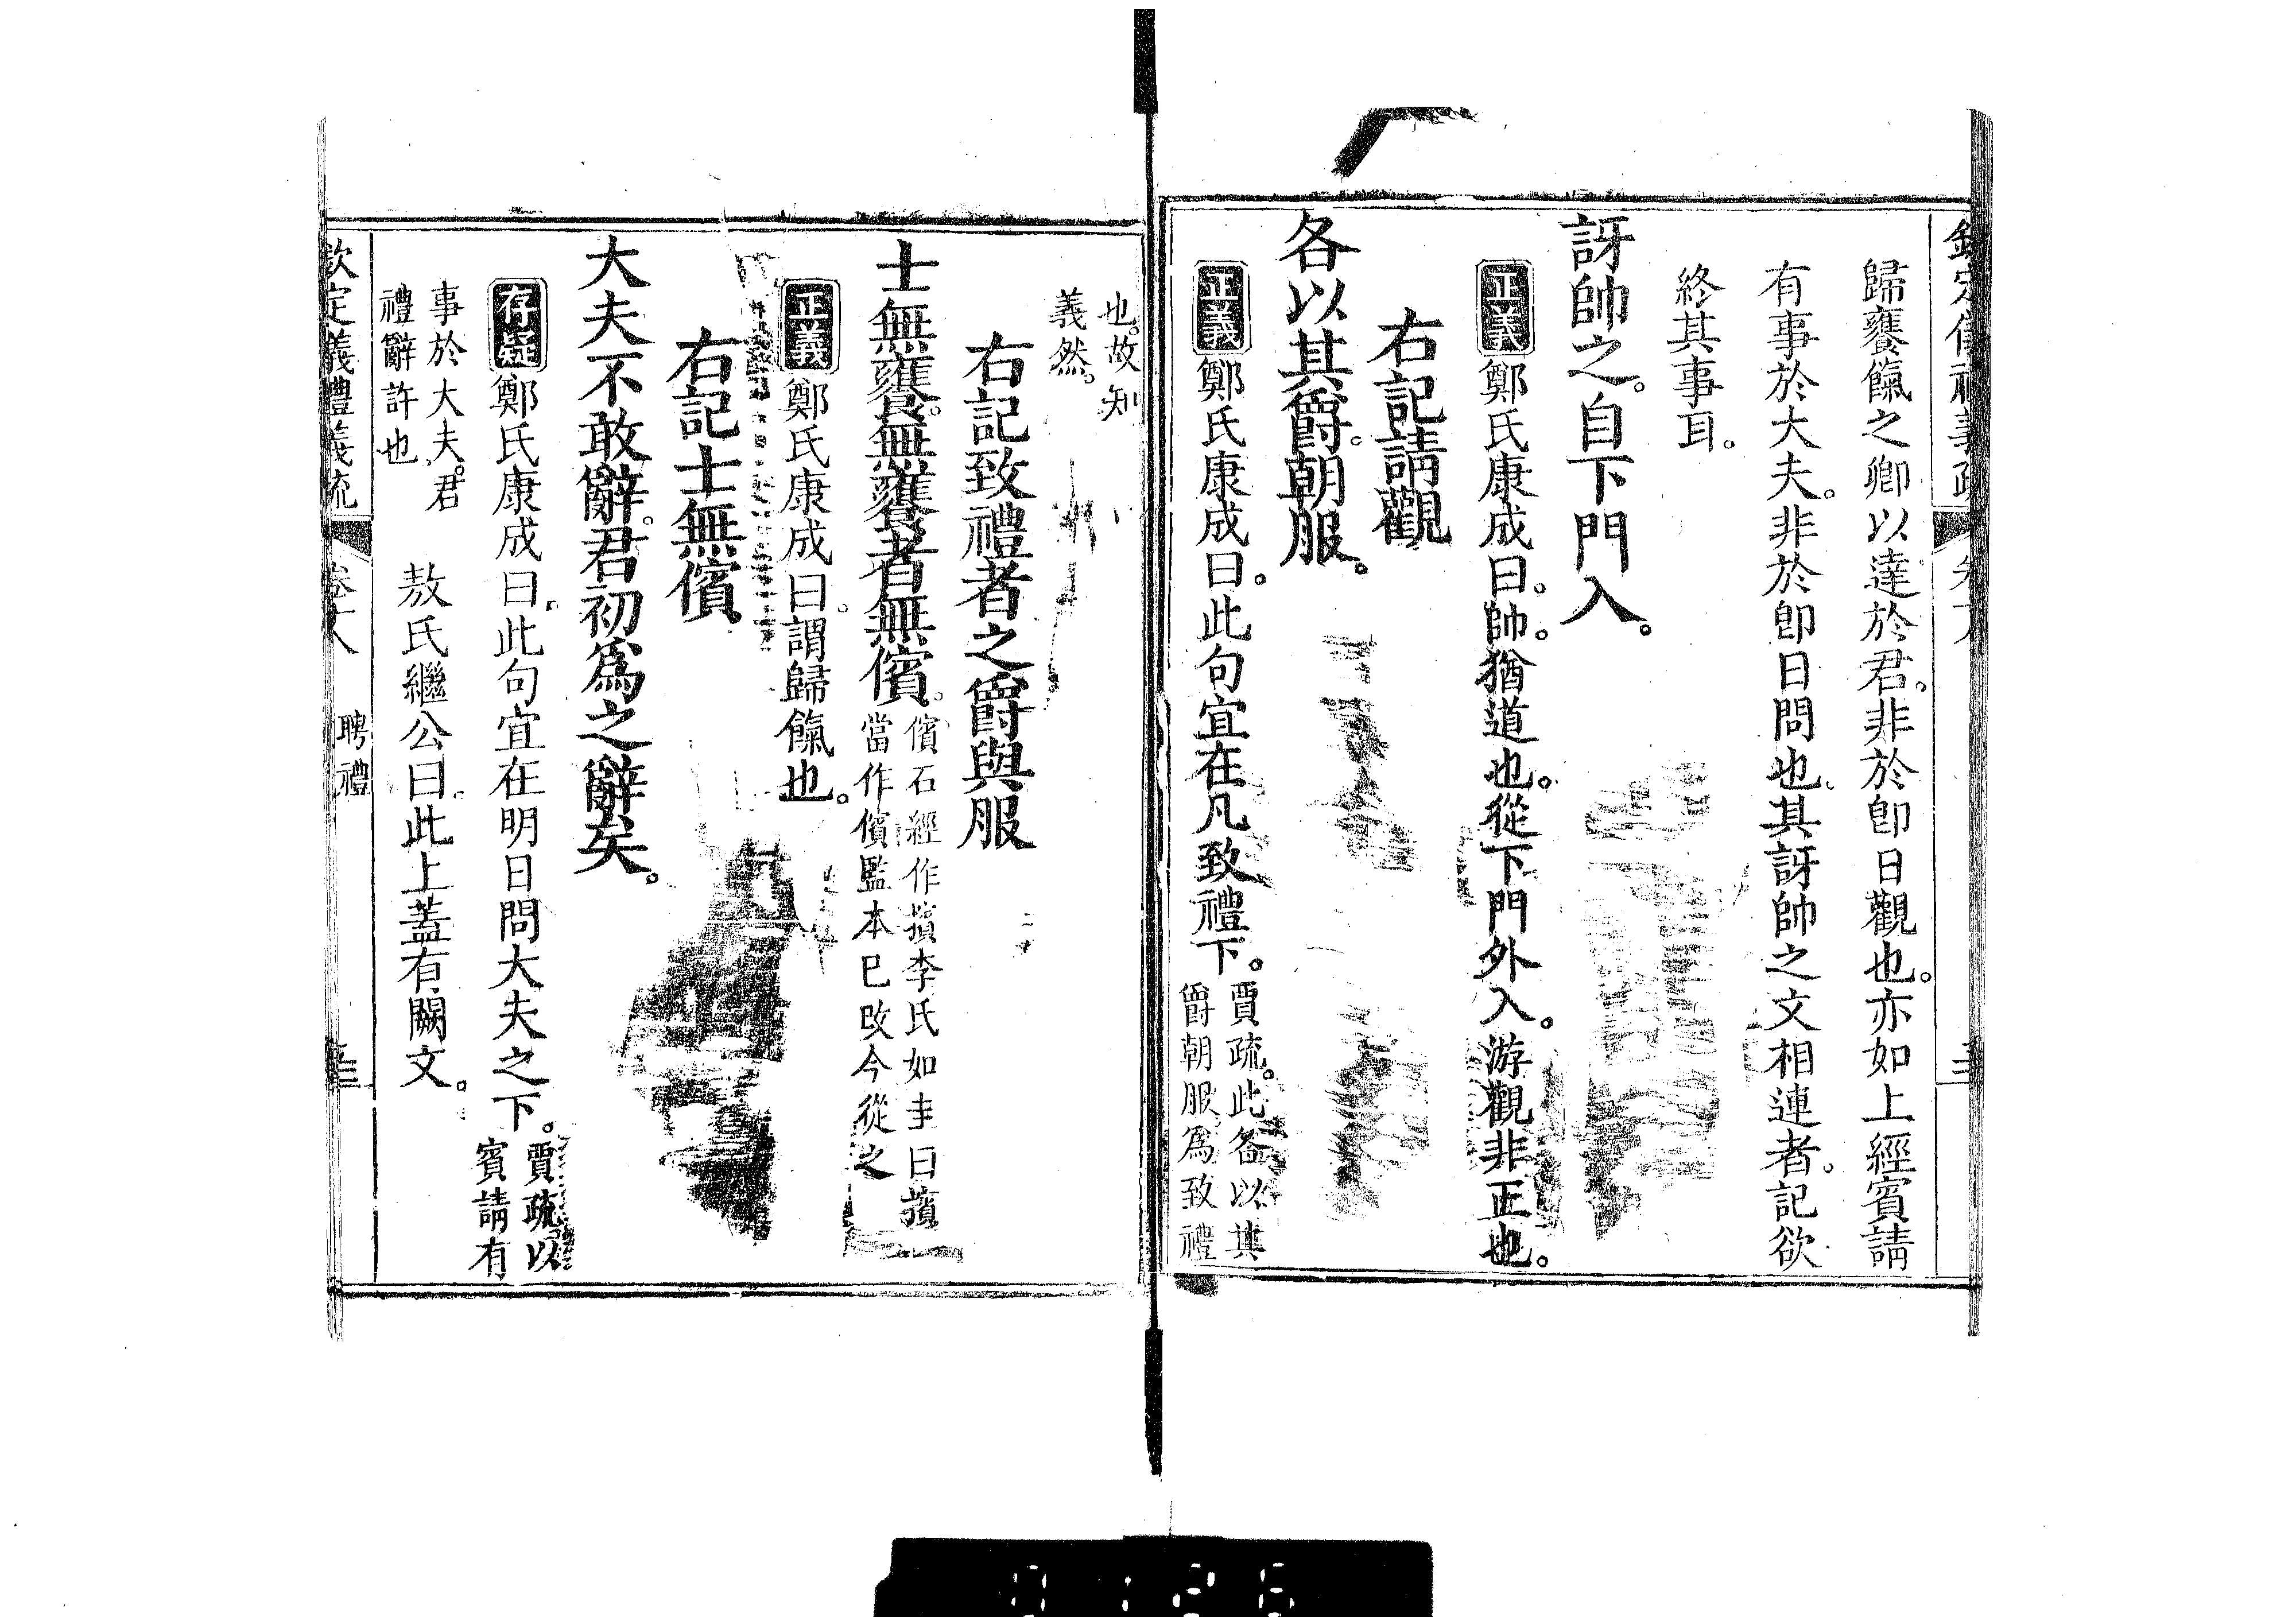 歸饔餼之卿以達於君。非於卽日觀也。亦如上經賓請
有事於大夫。非於卽日問也。其訝帥之文相連者。記欲
終其事耳。
訝帥之。自下門入。
正義鄭氏康成曰。帥。猶道也。從下門外入。游觀非正也。
右記請觀
各以其爵朝服。
正義鄭氏康成曰。此句宜在凡致禮下。賈疏。此各以其
爵朝服。為致禮
也。故知
義然。
右記致禮者之爵與服
士無饔。無饔者無儐。儐石經作擯李氏如圭曰擯
當作儐監本已改今從之
正義鄭氏康成曰。謂歸餼也。
右記士無儐
大夫不敢辭。君初為之辭矣。
存疑鄭氏康成曰。此句宜在明日問大夫之下。賈疏以
賓請有
事於大夫。君
禮辭許也
敖氏繼公曰。此上蓋有闕文。
欽定義禮義疏
聘禮